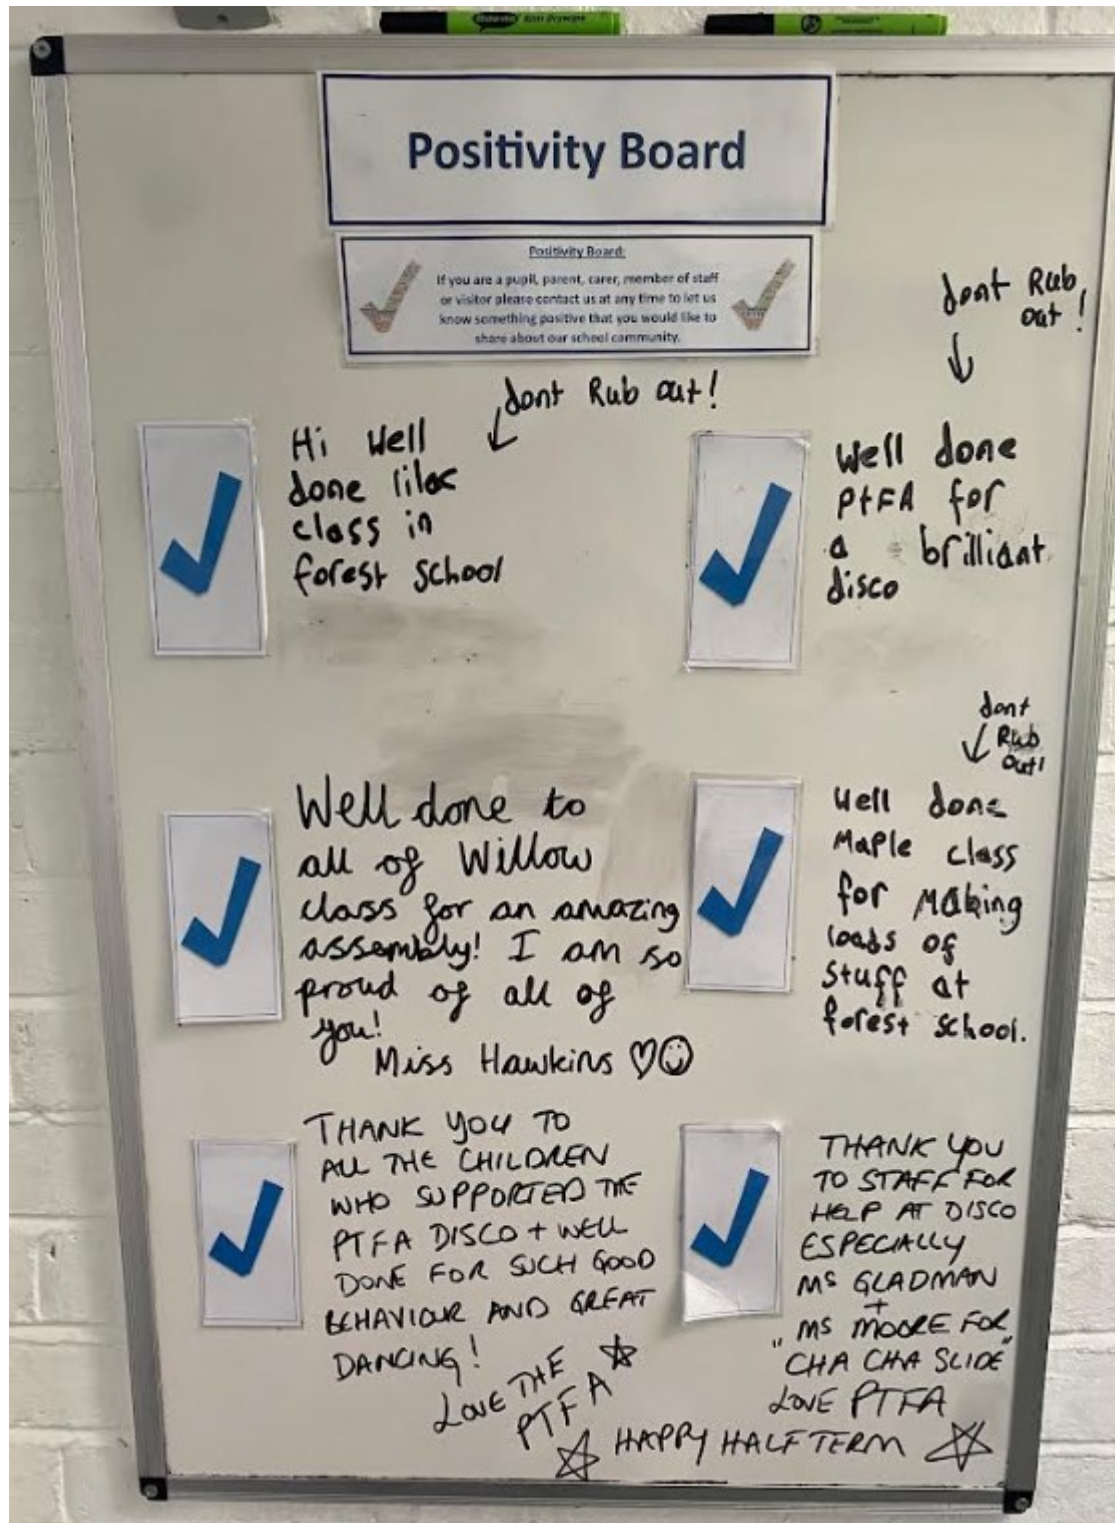 Positivity Board
Positivity Board:
If you are a pupil, parent, carer, member of staff
or visitor please contact us at any time to let us
know something positive that you would like to
share about our school community.
dont Rub out!
Hi Well
done lilac
class in
forest school
dont Rub
out!
Well done
PtFA for
a brilliant
disco
Well done to
all of Willow
class for an amazing
assembly! I am so
proud of all of
you!
Miss Hawkins
dont
Rub
out!
Well done
Maple class
for Making
loads of
stuff at
forest school.
THANK YOU TO
ALL THE CHILDREN
WHO SUPPORTED THE
PTFA DISCO + WELL
DONE FOR SUCH GOOD
BEHAVIOUR AND GREAT
DANCING!
LOVE THE
PTFA
THANK YOU
TO STAFF FOR
HELP AT DISCO
ESPECIALLY
MS GLADMAN
+
MS MOORE FOR
"CHA CHA SLIDE"
LOVE PTFA
HAPPY HALF TERM